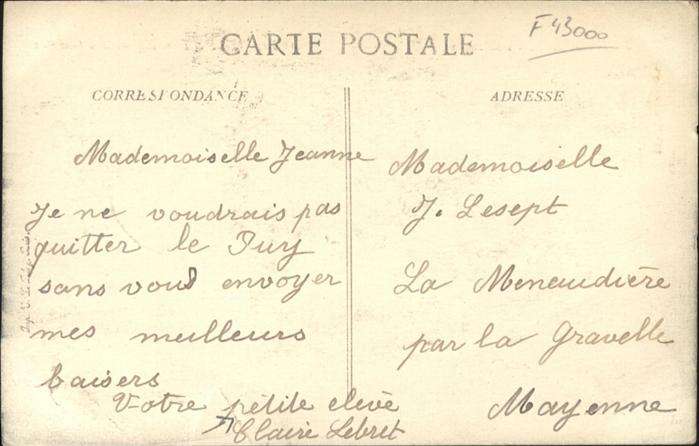 F 43000
CARTE POSTALE
CORRESPONDANCE
Mademoiselle Jeanne
Je ne voudrais pas
quitter le Puy
sans vous envoyer
mes meilleurs
baisers
Votre petite elevè
Claire Lebret
ADRESSE
Mademoiselle
J. Lesept
La Meneudière
par la Gravelle
Mayenne